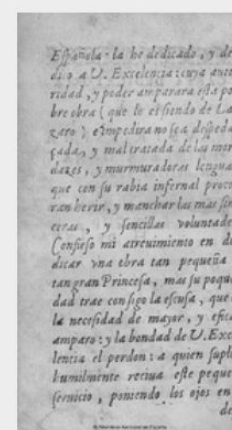 Eſpañola la he dedicado, y de
dico a V. Excelencia: cuya auto
ridad, y poder amparara eſta po
bre obra ( que le eſiendo de La
zaro ) e impedira no ſea deſpeda
çada, y mal tratada de las mor
dazes, y murmuradoras lenguas
que con ſu rabia infernal procu
ran herir, y manchar las mas ſin
ceras, y ſencillas voluntades
Confieſo mi atreuimiento en de
dicar vna obra tan pequeña a
tan gran Princeſa, mas ſu poque
dad trae conſigo la eſcuſa, que es
la neceſidad de mayor, y eficaz
amparo: y la bondad de V. Exce
lencia el perdon: a quien ſuplico
humilmente reciua eſte pequeño
ſeruicio, poniendo los ojos en
de
Biblioteca Nacional de España